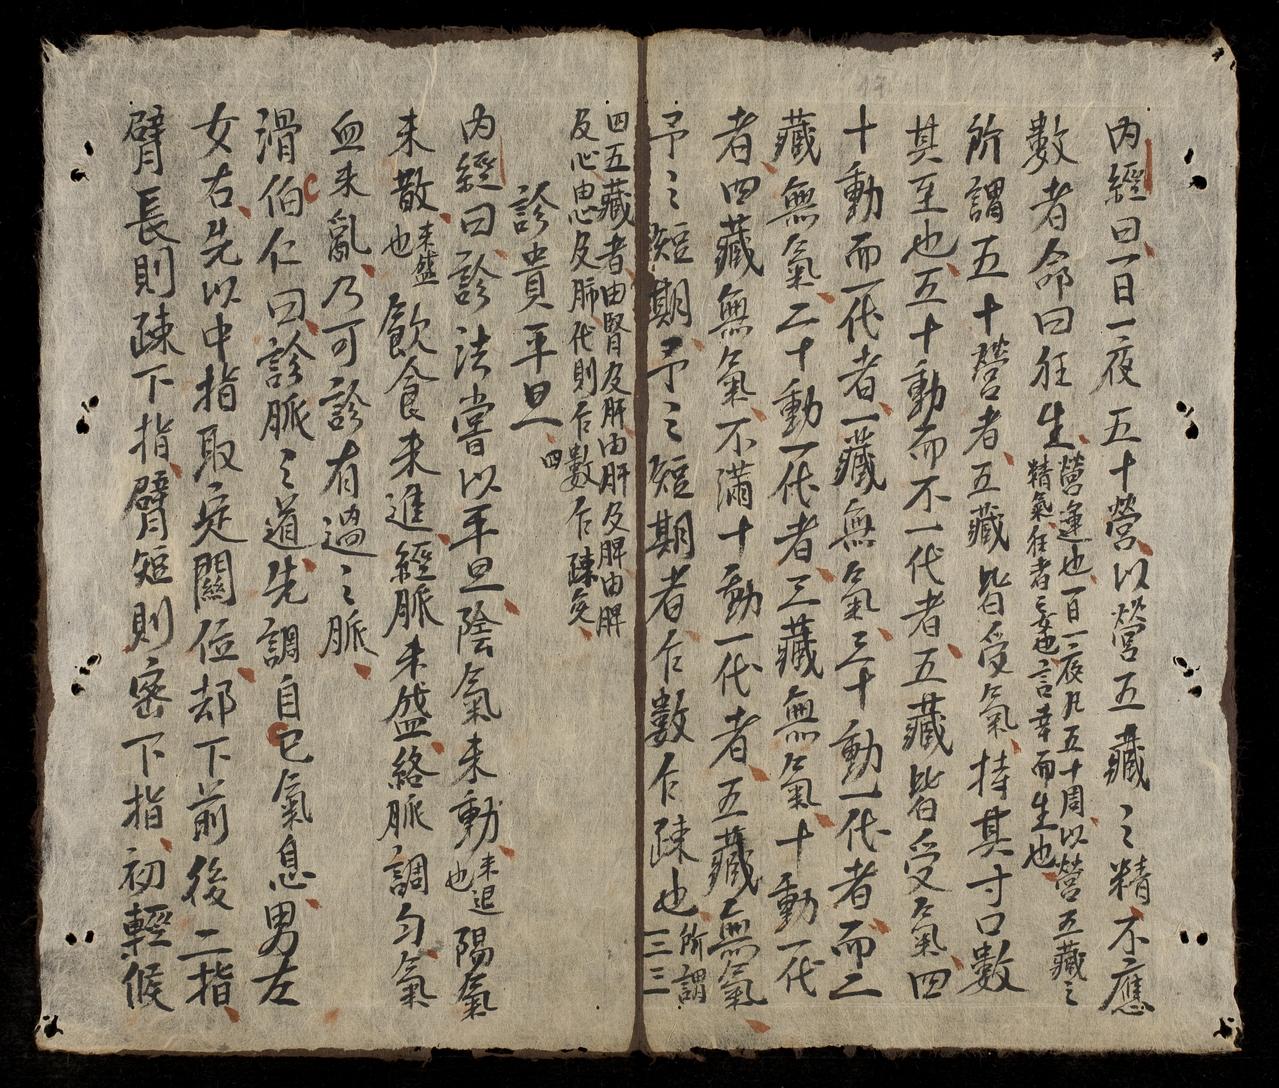 內經曰一日一夜五十營以營五藏之精不應
數者命曰狂生營運也一日一夜凡五十周以營五藏之
精氣狂者妄也言幸而生也
所謂五十營者五藏皆受氣持其寸口數
其至也五十動而不一代者五藏皆受氣四
十動而一代者一藏無氣三十動一代者而二
藏無氣二十動一代者三藏無氣十動一代
者四藏無氣不滿十動一代者五藏無氣
予之短期予之短期者乍數乍疎也所謂
三三
四五藏者由腎及肝由肝及脾由脾
及心由心及肺代則乍數乍疎矣
診貴平旦 四
內經曰診法嘗以平旦陰氣未動未退
也陽氣
未散未盛
也飲食未進經脈未盛絡脈調勻氣
血未亂乃可診有過之脈
滑伯仁曰診脈之道先調自己氣息男左
女右先以中指取定關位却下前後二指
臂長則疎下指臂短則密下指初輕候